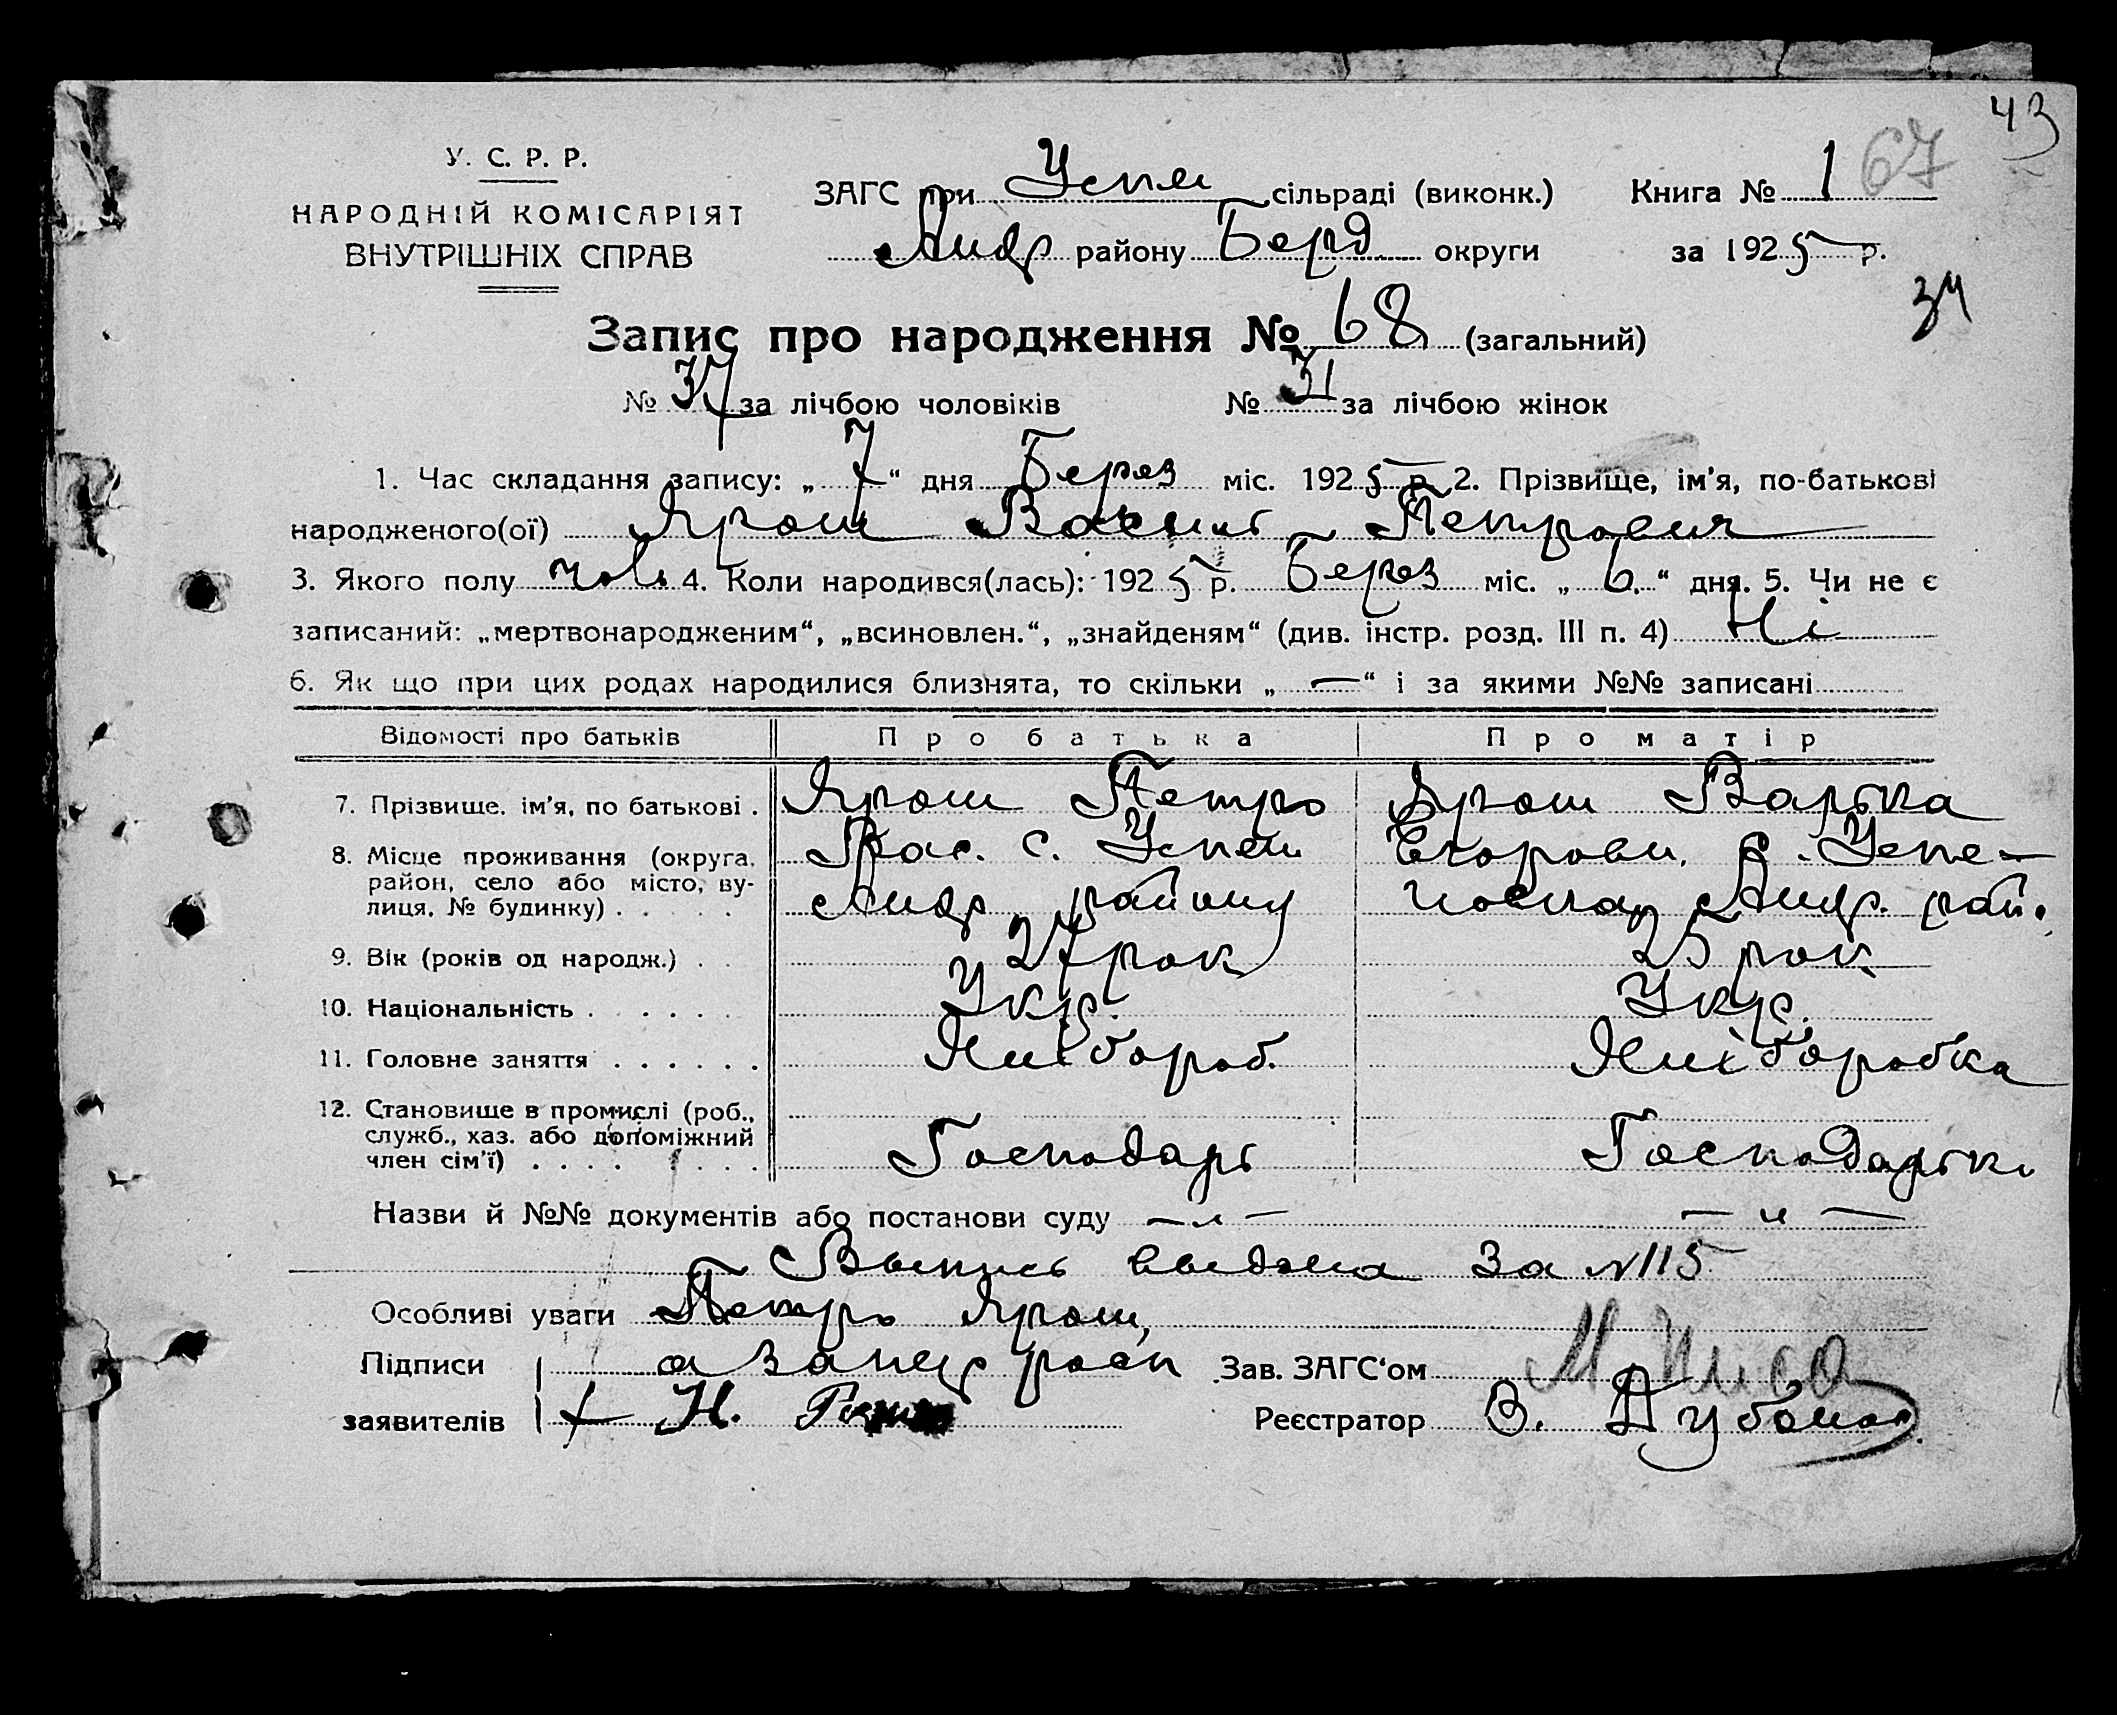 43
У. С. Р. Р.
НАРОДНІЙ КОМІСАРІЯТ
ВНУТРІШНІХ СПРАВ
ЗАГС при Успен сільраді (виконк.) Книга № 1 67
Андр району Берд округи за 1925 р.
34
Запис про народження № 68 (загальний)
№ 37 за лічбою чоловіків № 31 за лічбою жінок
1. Час складання запису: „ 7 “ дня Берез міс. 1925 р. 2. Прізвище, ім'я, по-батькові
народженого(ої) Ярош Василь Петрович
3. Якого полу чол. 4. Коли народився(лась): 1925 р. Берез міс. „ 6. “ дня. 5. Чи не є
записаний: „мертвонародженим“, „всиновлен.“, „знайденям“ (див. інстр. розд. III п. 4) Ні
6. Як що при цих родах народилися близнята, то скільки „ — “ і за якими №№ записані
Відомості про батьків Про батька Про матір
7. Прізвище. ім'я, по батькові . Ярош Петро Ярош Варька
8. Місце проживання (округа, с. Успен Егоровн. с. Успе-
район, село або місто, ву-
лиця, № будинку) . . . . . Андр району Андр. рай.
9. Вік (років од народж.) . . 27 рок 25 рок
10. Національність . . . . . . Укр. Укр.
11. Головне заняття . . . . . . Хлібороб. Хліборобка
12. Становище в промислі (роб.,
служб., хаз. або допоміжний
член сім'ї) . . . . . . . . Господарь Господарька
Назви й №№ документів або постанови суду — „ — — „ —
Выпись выдана за №115
Особливі уваги Петро Ярош,
Підписи а за неgр росп Зав. ЗАГС'ом
заявителів + Н. Реєстратор В. Дубона